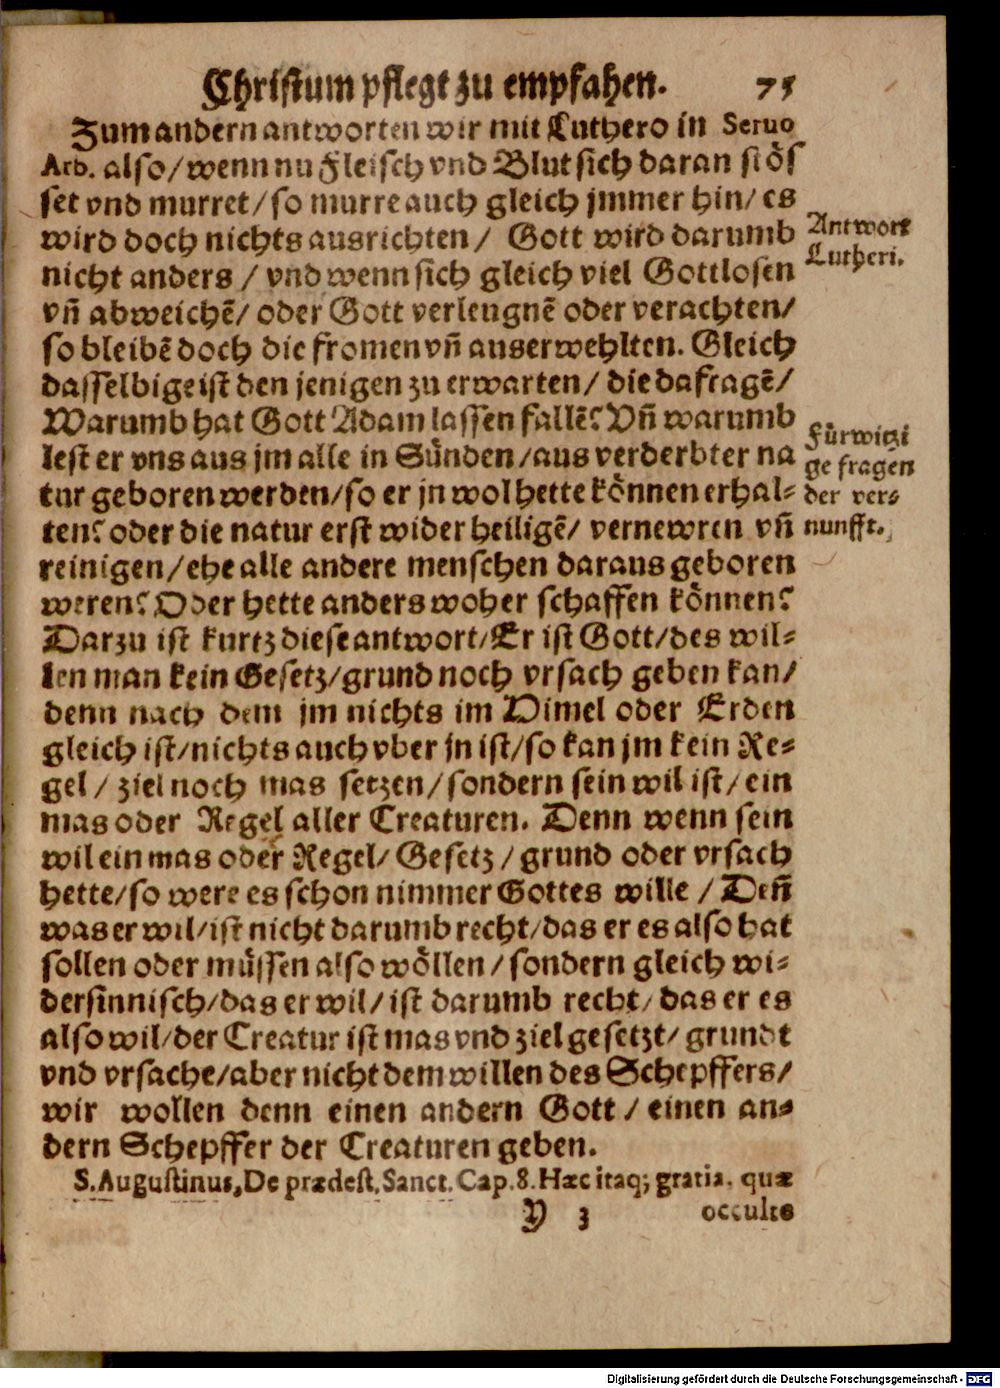 Christum pflegt zu empfahen. 75
Zum andern antworten wir mit Luthero in Seruo
Arb. also/wenn nu Fleisch vnd Blut sich daran stös
set vnd murret/so murre auch gleich jmmer hin/es
wird doch nichts ausrichten/ Gott wird darumb
Antwort
Lutheri.
nicht anders/vnd wenn sich gleich viel Gottlosen
vñ abweichē/oder Gott verleugnē oder verachten/
so bleibē doch die fromen vñ auserwehlten. Gleich
dasselbige ist den jenigen zu erwarten/die da fragē/
Warumb hat Gott Adam lassen fallē? Vñ warumb
Fürwitzi
ge fragen
der ver⸗
nunfft.
lest er vns aus jm alle in Sünden/aus verderbter na
tur geboren werden/so er jn wol hette können erhal⸗
ten? oder die natur erst wider heiligē/ vernewren vñ
reinigen/ehe alle andere menschen daraus geboren
weren? Oder hette anders woher schaffen können?
Darzu ist kurtz diese antwort/Er ist Gott/des wil⸗
len man kein Gesetz/grund noch vrsach geben kan/
denn nach dem jm nichts im Himel oder Erden
gleich ist/nichts auch vber jn ist/so kan jm kein Re⸗
gel/ziel noch mas setzen/sondern sein wil ist/ein
mas oder Regel aller Creaturen. Denn wenn sein
wil ein mas oder Regel/Gesetz/grund oder vrsach
hette/so were es schon nimmer Gottes wille/Deñ
was er wil/ist nicht darumb recht/das er es also hat
sollen oder müssen also wöllen/sondern gleich wi⸗
dersinnisch/das er wil/ist darumb recht/das er es
also wil/der Creatur ist mas vnd ziel gesetzt/grundt
vnd vrsache/aber nicht dem willen des Schepffers/
wir wollen denn einen andern Gott/einen an⸗
dern Schepffer der Creaturen geben.
S. Augustinus, De prædest. Sanct. Cap. 8. Hæc itaq; gratia, quæ
V 3 occulte
Digitalisierung gefördert durch die Deutsche Forschungsgemeinschaft - DFG